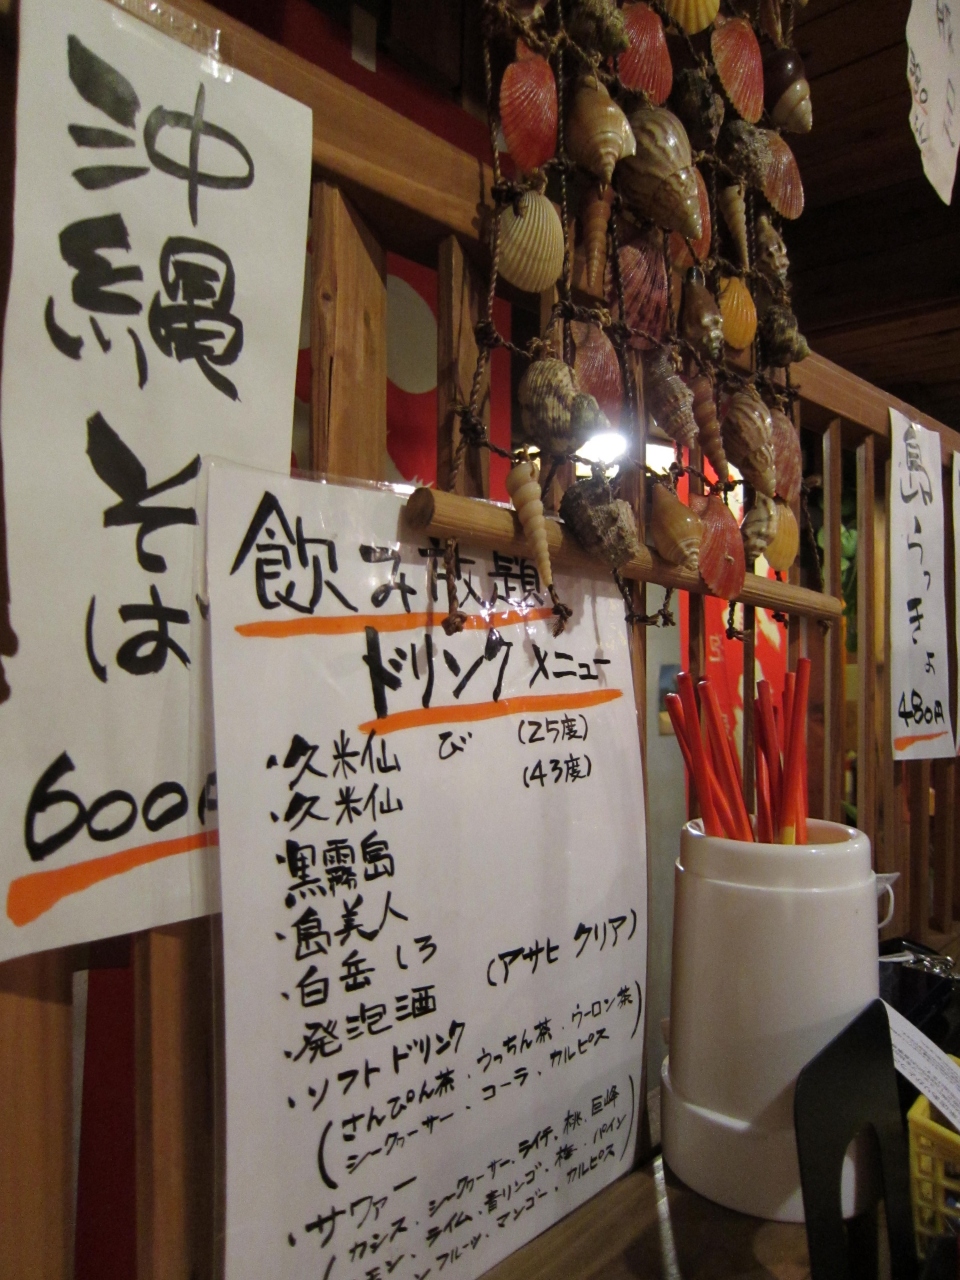 沖縄そば
600円
飲み放題
ドリンクメニュー
・久米仙 び (25度)
・久米仙 (43度)
・黒霧島
・島美人
・白岳 しろ
・発泡酒 (アサヒ クリア)
・ソフトドリンク
(さんぴん茶・うっちん茶・ウーロン茶
シークヮーサー・コーラ・カルピス)
・サワァー
(カシス・シークヮーサー・ライチ・桃・巨峰
モン・ライム・青リンゴ・梅・パイン
フルーツ・マンゴー・カルピス)
島らっきょ
480円